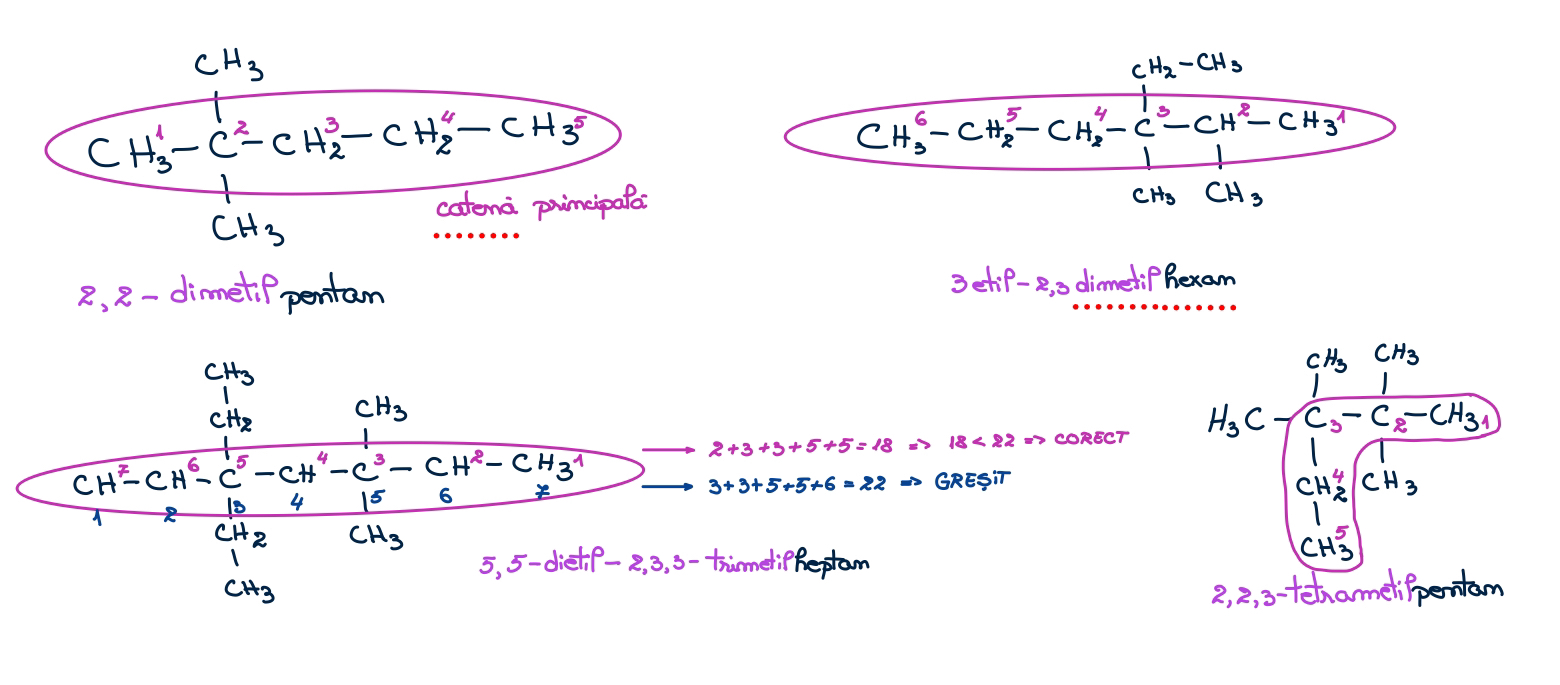 CH3
CH3 1 – C 2 – CH2 3 – CH2 4 – CH3 5
CH3
catenă principală
2,2 – dimetil pentan
CH2 – CH3
CH3 6 – CH2 5 – CH2 4 – C 3 – CH 2 – CH3 1
CH3 CH3
3 etil – 2,3 dimetil hexan
CH3
CH2 CH3
CH 7 – CH 6 – C 5 – CH 4 – C 3 – CH 2 – CH3 1
1 2 3 4 5 6 7
CH2 CH3
CH3
2+3+3+5+5=18 => 18<22 => CORECT
3+3+5+5+6=22 => GREȘIT
5,5-dietil – 2,3,3- trimetil heptan
CH3 CH3
H3C – C 3 – C 2 – CH3 1
CH2 4 CH3
CH3 5
2,2,3-tetrametil pentan